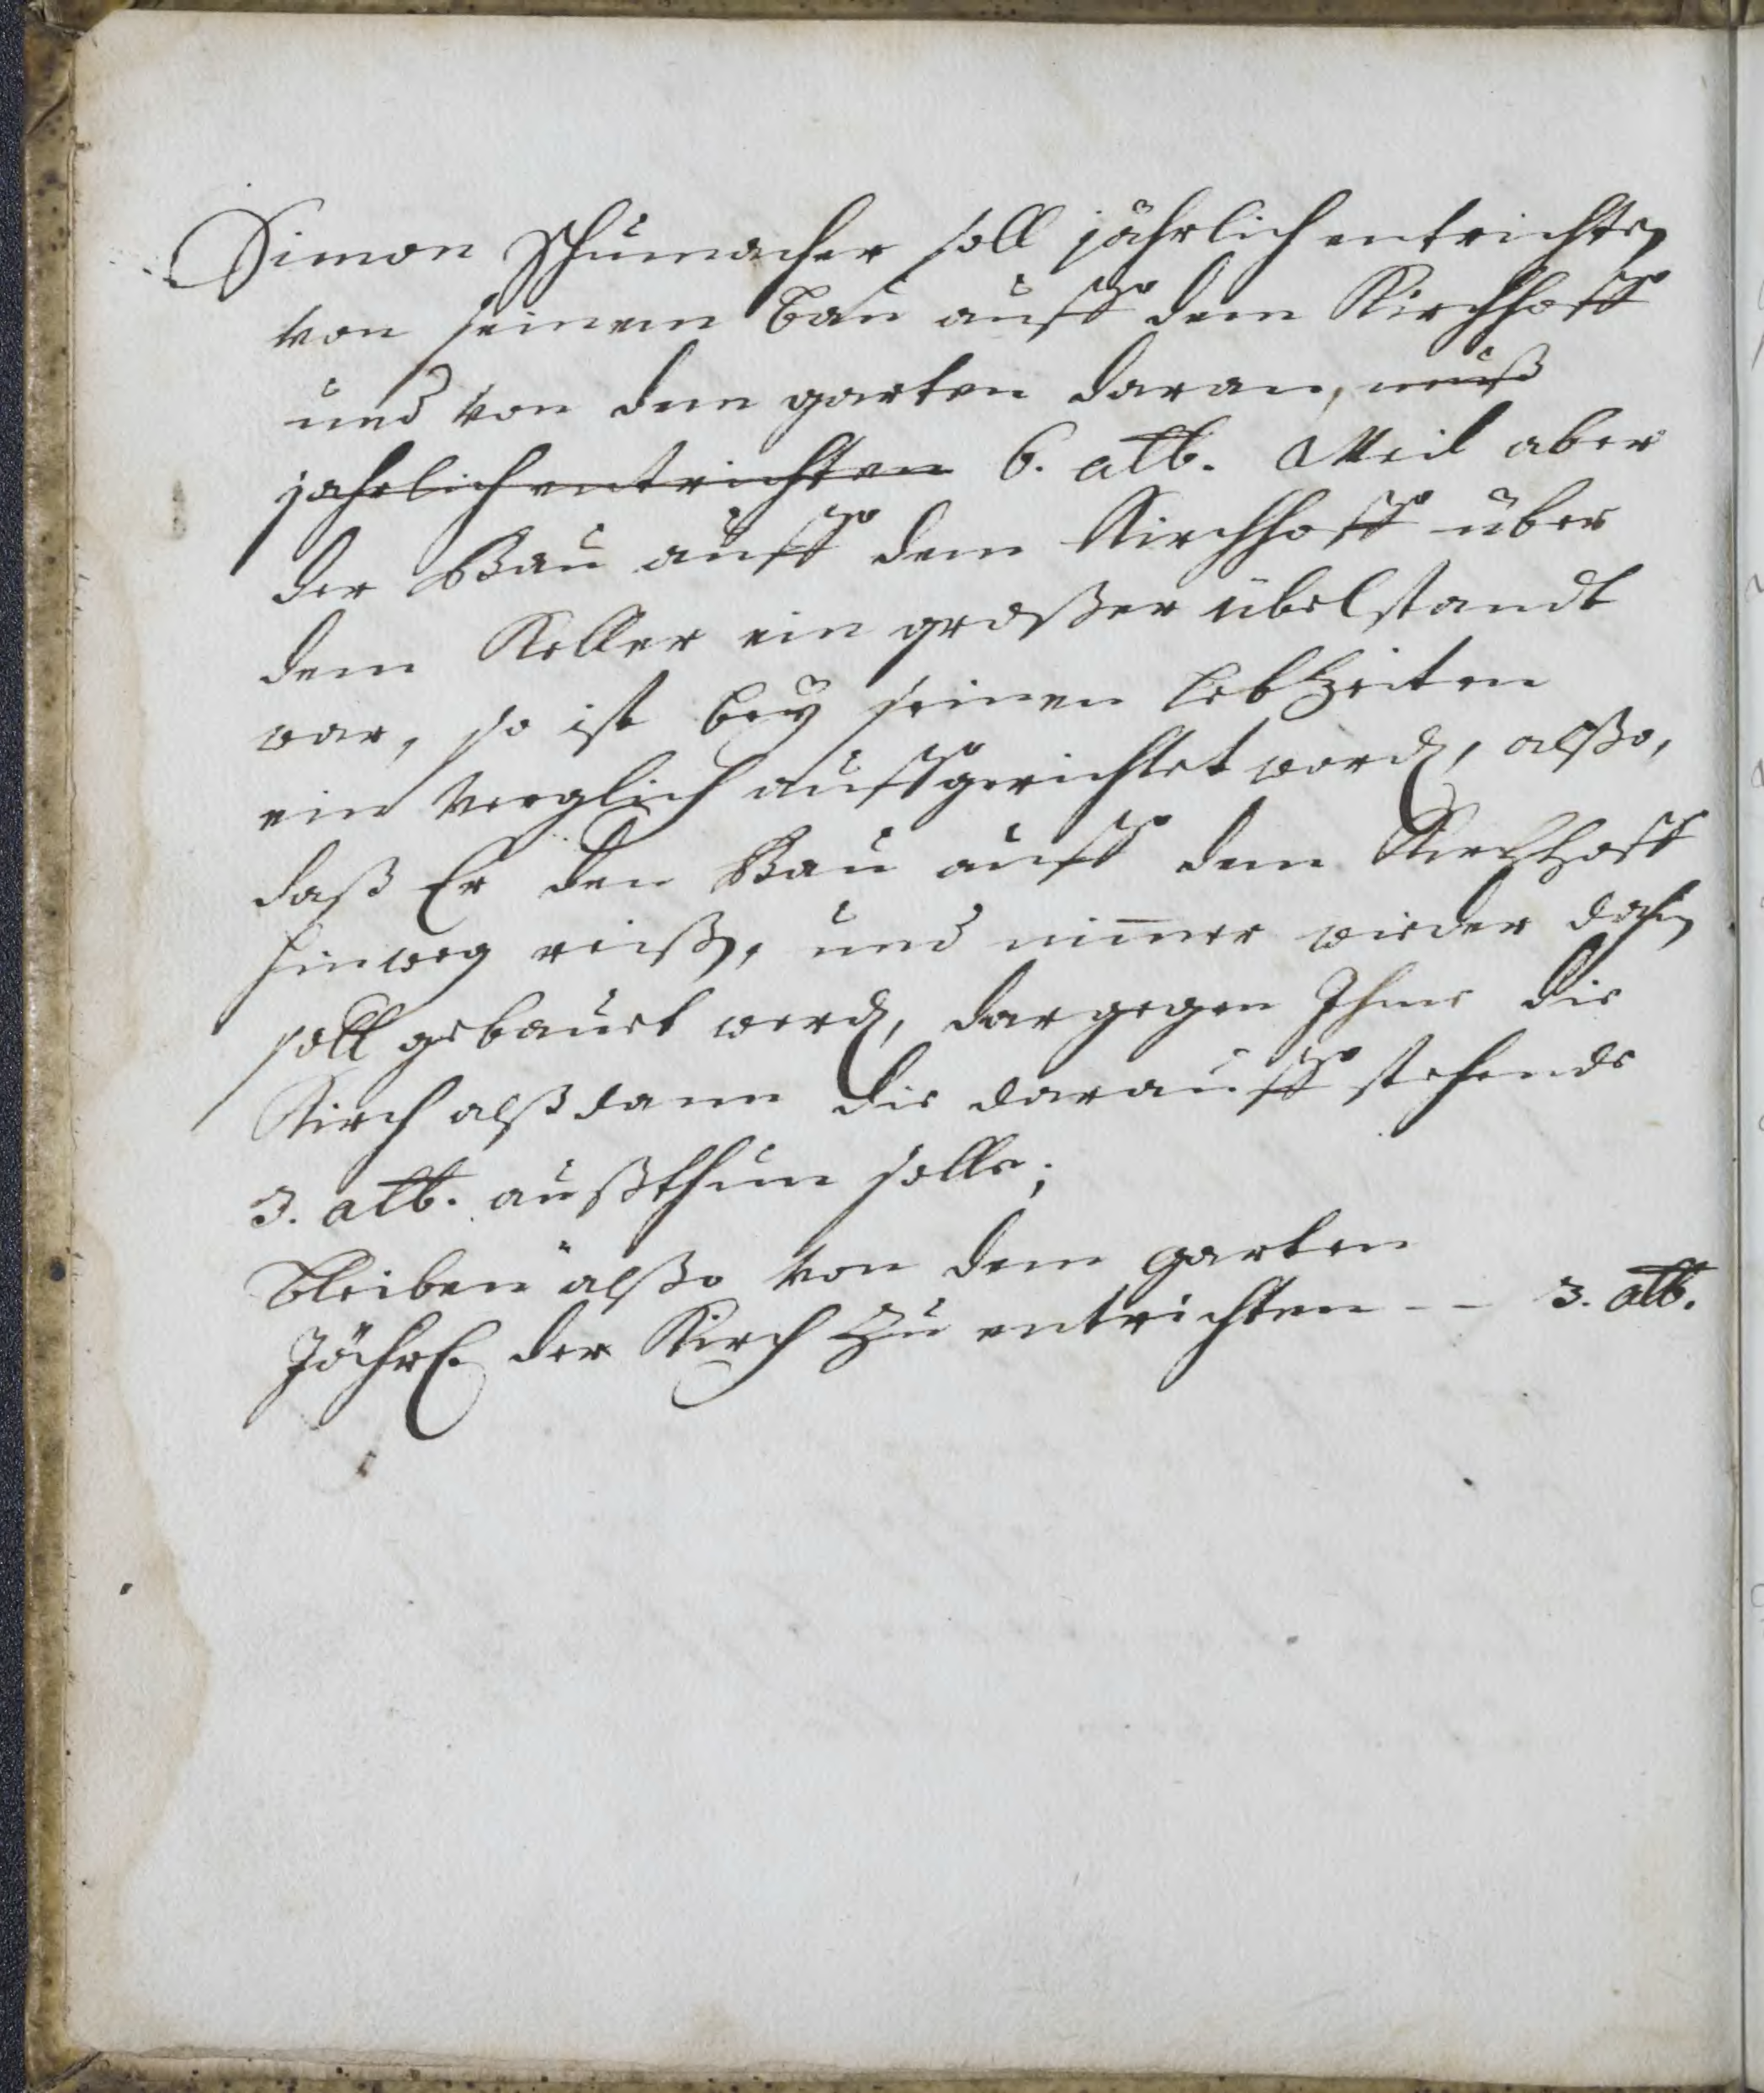 Simon Schumacher soll jährlich entrichten
von seinem bau auff dem Kirchhoff
und von dem garten daran, muß
jahrlich entrichten 6. alb. Weil aber
der Bau auff dem Kirchhoff über
dem Keller ein großer übelstandt
war, so ist bey seinen lebZeiten
ein Verglich auffgerichtet word, alßo,
daß Er den Bau auff dem Kirchhoff
hinweg reiß, und nimer wieder dahin
soll gebauet werd, dargegen Ihme die
Kirch alßdann die darauff stehende
3. alb. außthun solle;
bleiben alßo von dem garten
Jährl. der Kirch Zu entrichten -- 3. alb.